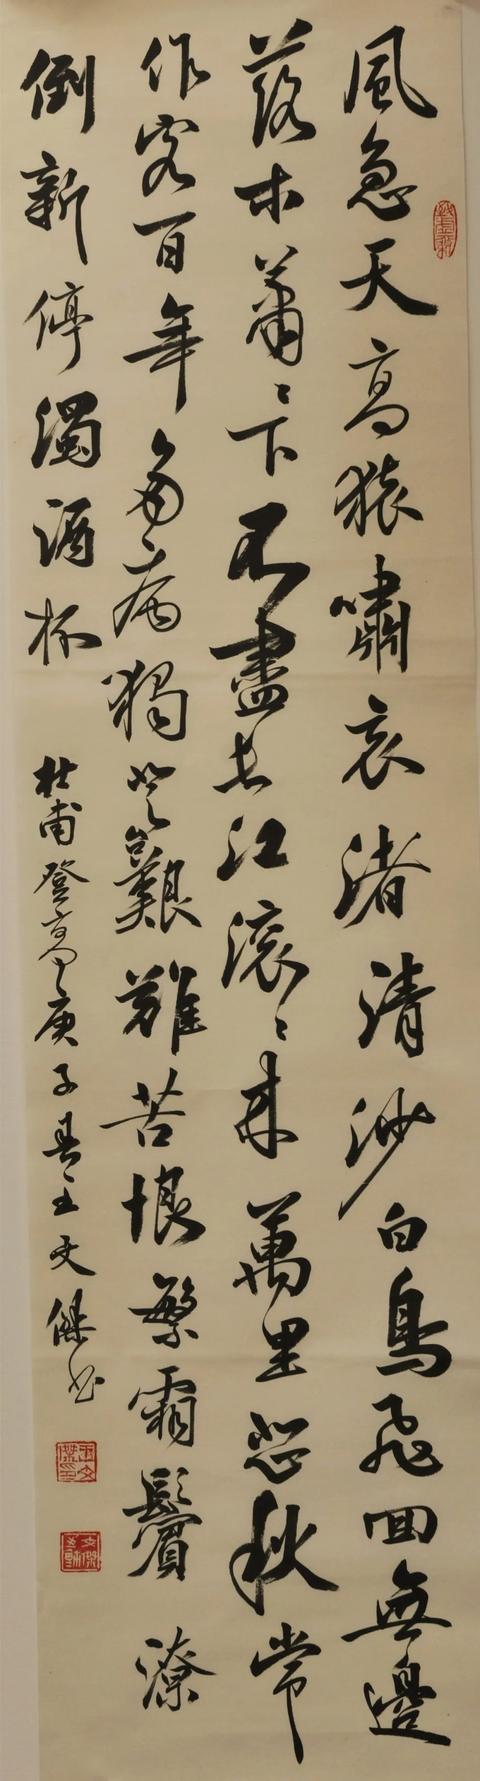 風急天高猿嘯哀渚清沙白鳥飛回無邊
落木蕭〻下不盡長江滚〻来萬里悲秋常
作客百年多病獨登臺艱難苦恨繁霜鬢潦
倒新停濁酒杯
杜甫登高庚子夏王文傑書
王文傑印